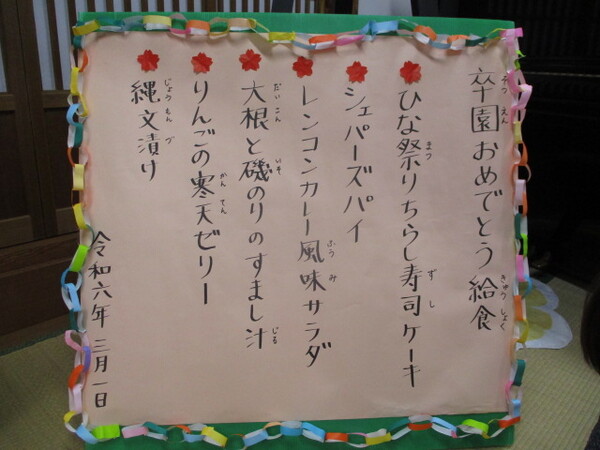 卒園おめでとう給食
ひな祭りちらし寿司ケーキ
シェパーズパイ
レンコンカレー風味サラダ
大根と磯のりのすまし汁
りんごの寒天ゼリー
縄文漬け
令和六年 三月一日